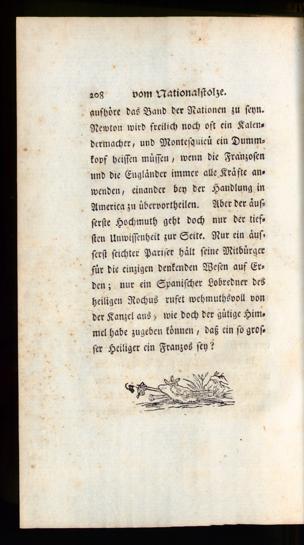 208 vom Nationalstolze.
aufhöre das Band der Nationen zu seyn.
Newton wird freilich noch oft ein Kalen-
dermacher, und Montesquieü ein Dumm-
kopf heissen müssen, wenn die Franzosen
und die Engländer immer alle Kräfte an-
wenden, einander bey der Handlung in
America zu übervortheilen. Aber der äus-
serste Hochmuth geht doch nur der tief-
sten Unwissenheit zur Seite. Nur ein äus-
serst seichter Pariser hält seine Mitbürger
für die einzigen denkenden Wesen auf Er-
den; nur ein Spanischer Lobredner des
heiligen Rochus rufet wehmuthsvoll von
der Kanzel aus, wie doch der gütige Him-
mel habe zugeben können, daß ein so gros-
ser Heiliger ein Franzos sey?